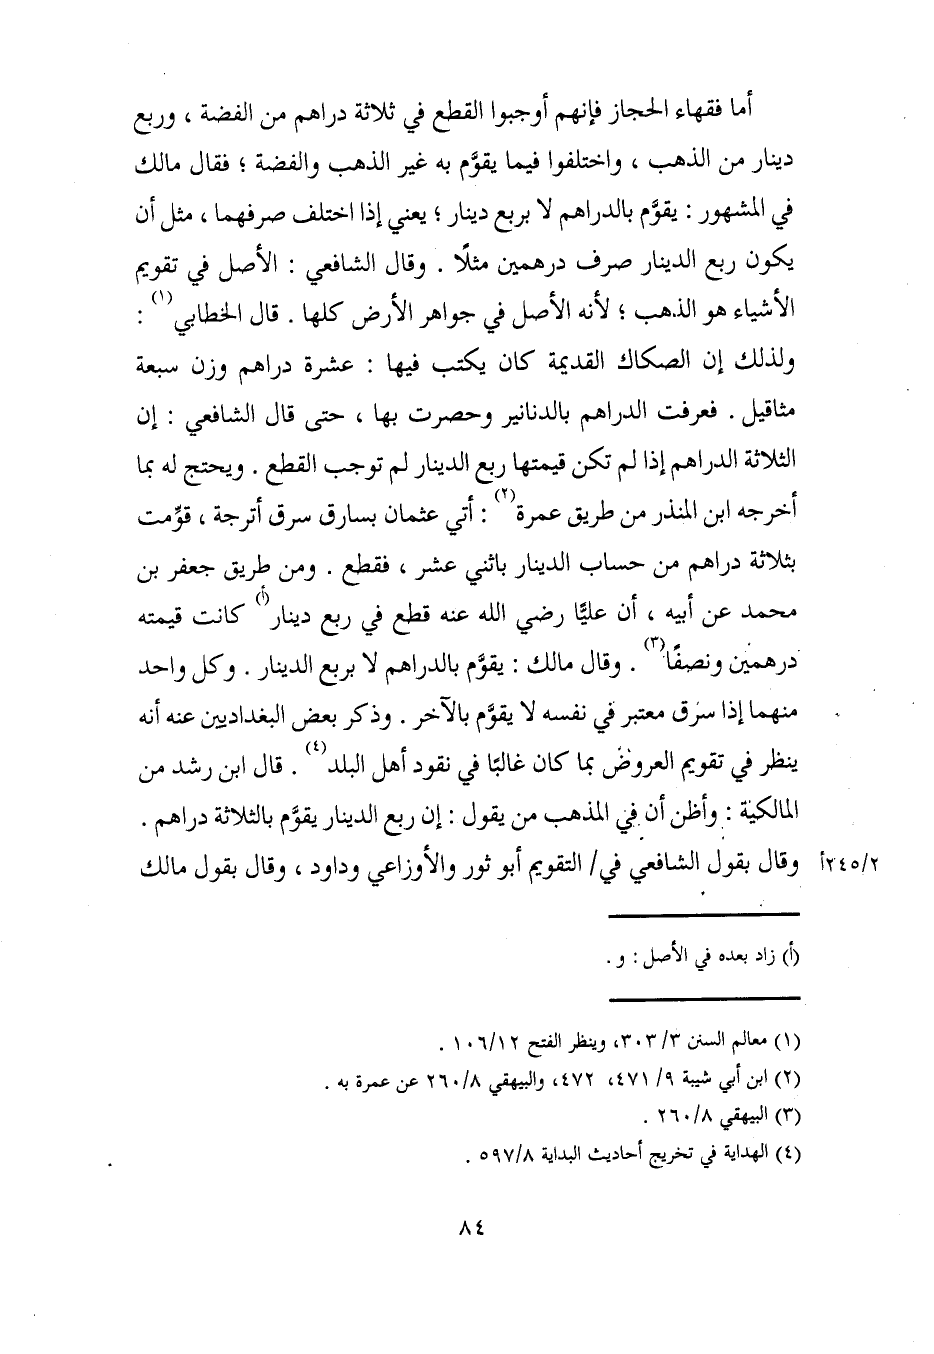 أما فقهاء الحجاز فإنهم أوجبوا القطع في ثلاثة دراهم من الفضة ، وربع
دينار من الذهب ، واختلفوا فيما يقوَّم به غير الذهب والفضة ؛ فقال مالك
في المشهور : يقوَّم بالدراهم لا بربع دينار ؛ يعني إذا اختلف صرفهما ، مثل أن
يكون ربع الدينار صرف درهمين مثلًا . وقال الشافعي : الأصل في تقويم
الأشياء هو الذهب ؛ لأنه الأصل في جواهر الأرض كلها . قال الخطابي(١) :
ولذلك إن الصكاك القديمة كان يكتب فيها : عشرة دراهم وزن سبعة
مثاقيل . فعرفت الدراهم بالدنانير وحصرت بها ، حتى قال الشافعي : إن
الثلاثة الدراهم إذا لم تكن قيمتها ربع الدينار لم توجب القطع . ويحتج له بما
أخرجه ابن المنذر من طريق عمرة(٢) : أتي عثمان بسارق سرق أترجة ، قوِّمت
بثلاثة دراهم من حساب الدينار باثني عشر ، فقطع . ومن طريق جعفر بن
محمد عن أبيه ، أن عليًّا رضي الله عنه قطع في ربع دينار(أ) كانت قيمته
درهمين ونصفًا(٣) . وقال مالك : يقوَّم بالدراهم لا بربع الدينار . وكل واحد
منهما إذا سرق معتبر في نفسه لا يقوَّم بالآخر . وذكر بعض البغداديين عنه أنه
ينظر في تقويم العروض بما كان غالبًا في نقود أهل البلد(٤) . قال ابن رشد من
المالكية : وأظن أن في المذهب من يقول : إن ربع الدينار يقوَّم بالثلاثة دراهم .
٢/٢٤٥أ وقال بقول الشافعي في/ التقويم أبو ثور والأوزاعي وداود ، وقال بقول مالك
(أ) زاد بعده في الأصل : و .
(١) معالم السنن ٣/ ٣٠٣، وينظر الفتح ١٠٦/١٢ .
(٢) ابن أبي شيبة ٩/ ٤٧١، ٤٧٢، والبيهقي ٢٦٠/٨ عن عمرة به .
(٣) البيهقي ٢٦٠/٨ .
(٤) الهداية في تخريج أحاديث البداية ٥٩٧/٨ .
٨٤